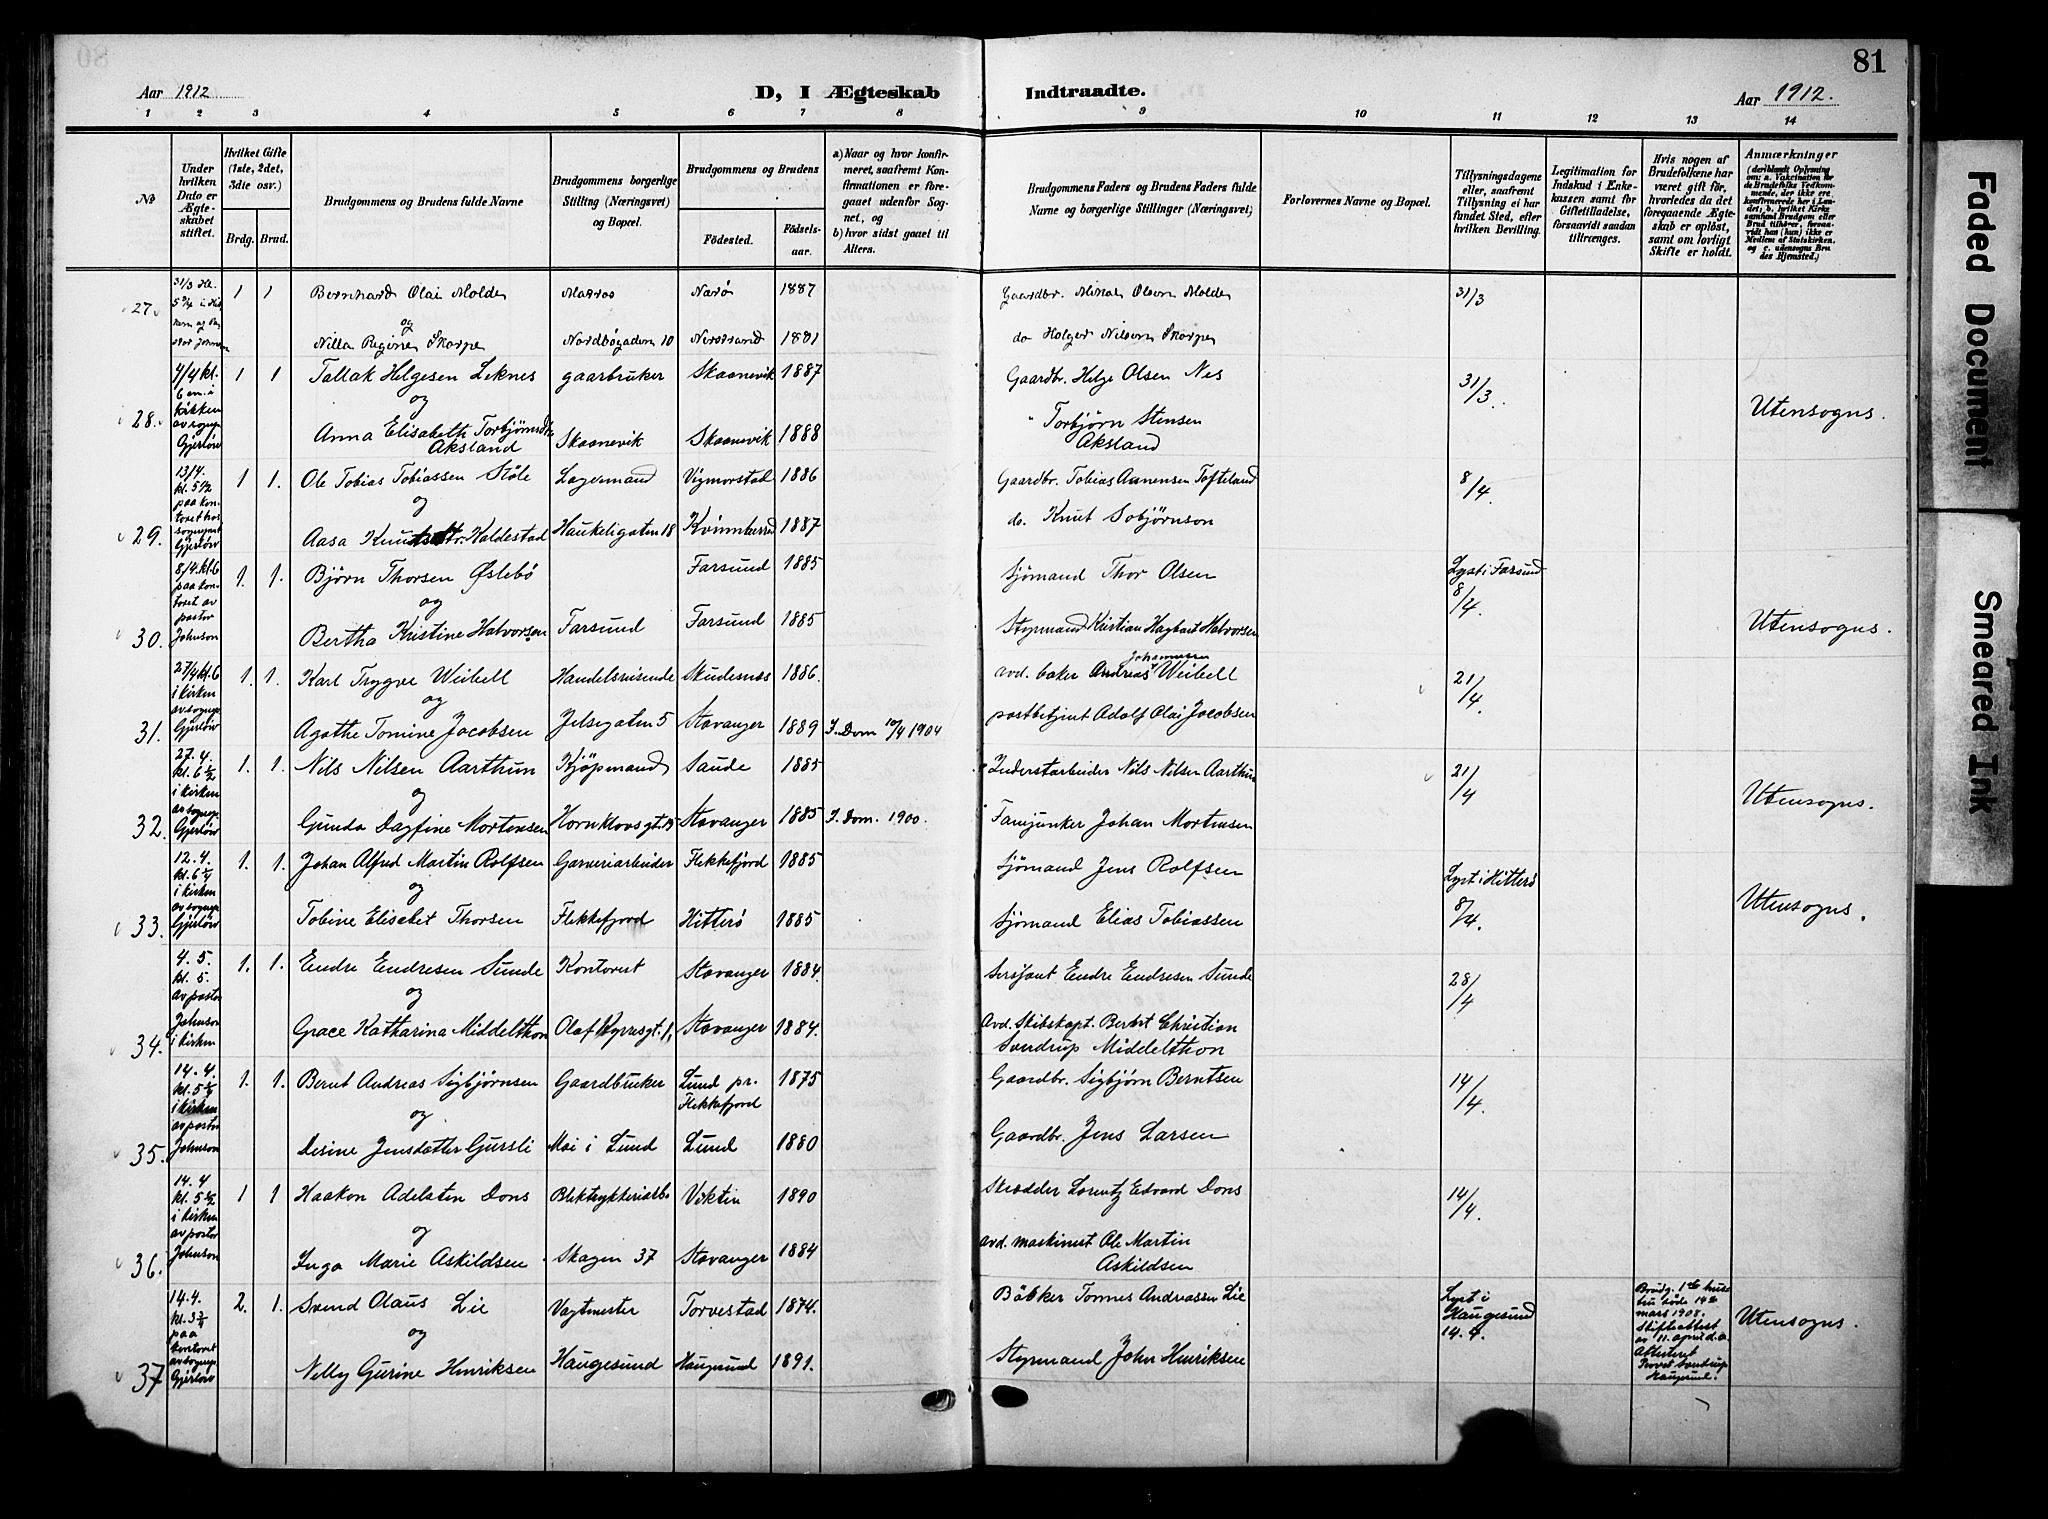 80
81
Aar 1912
D, I Ægteskab
Indtraadte.
Aar 1912.
1 2 3 4 5 6 7 8 9 10 11 12 13 14
No
Under hvilken Dato er Ægteskabet stiftet.
Hvilket Gifte (1ste, 2det, 3die osv.)
Brdg. Brud.
Brudgommens og Brudens fulde Navne
Brudgommens borgerlige Stilling (Næringsvei) og Bopæl.
Brudgommens og Brudens
Födested.
Födselsaar.
a) Naar og hvor konfirmeret, saafremt Konfirmationen er foregaaet udenfor Sognet, og
b) hvor sidst gaaet til Alters.
Brudgommens Faders og Brudens Faders fulde Navne og borgerlige Stillinger (Næringsvei)
Forlovernes Navne og Bopæl.
Tillysningsdagene eller, saafremt Tillysning ei har fundet Sted, efter hvilken Bevilling.
Legitimation for Indskud i Enkekassen samt for Giftetilladelse, forsaavidt saadan tiltrænges.
Hvis nogen af Brudefolkene har været gift før, hvorledes da det foregaaende Ægteskab er oplöst, samt om lovligt Skifte er holdt.
Anmærkninger (deriblandt Oplysning om: a. Vakcination for de Brudefolks Vedkommende, der ikke ere konfirmerede her i Landet; b. hvilket Kirkesamfund Brudgom eller Brud tilhörer, forsaavidt han (hun) ikke er Medlem af Statskirken, og c. udensogns Brudes Hjemsted.)
27. 31/3 1 1 Bernhard Olai Molde Matros Nærö 1887 Gaardbr. Mikal Olsen Molde 31/3
og
Nilla Regine Skorpe Nordbögaden 10 Nerstrand 1881 do Holger Nilsen Skorpe
28. 4/4 kl. 6 em. i kirken av sognep. Gjerløw 1 1 Tallak Helgesen Leknes gaarbruker Skaanevik 1887 Gaardbr. Helge Olsen Nes 31/3. Utensogns.
og
Anna Elisabeth Torbjörnsdtr. Aksland Skaanevik Skaanevik 1888 " Torbjörn Stensen Aksland
29. 13/4. kl. 5 1/2 paa kontoret hos sognepr. Gjerløw 1 1. Ole Tobias Tobiassen Støle Lagermand Vigmorstad 1886 Gaardbr. Tobias Aanensen Tofteland 8/4.
og
Aasa Knutsdtr. Haldestad Haukeligaten 18 Kvinnherred 1887 do. Knut Sobjørnson
30. 8/4. kl. 6 paa kontoret av pastor Johnson 1. 1. Björn Thorsen Øslebö Farsund 1885 Sjømand Thor Olsen Lyst i Farsund 8/4. Utensogns.
og
Bertha Kristine Halvorsen Farsund Farsund 1885 Styrmand Kristian Hagbart Halvorsen
31. 27/4 kl. 6 i kirken av sognep. Gjerløw 1. 1. Karl Trygve Weibell Handelsreisende Skudesnes 1886. avd. baker Andreas Johannessen Weibell 21/4.
og
Agathe Tomine Jacobsen Jelsegaten 5 Stavanger 1889 I. Dom 10/4 1904 postbetjent Adolf Olai Jacobsen
32. 27.4. kl. 6 1/2 i kirken av sognep. Gjerløw 1. 1. Nils Nilsen Aarthun Kjöpmand Saude 1885 Inderstarbeider Nils Nilsen Aarthun 21/4 Utensogns.
og
Gunda Dagfine Mortensen Hornklovsgt. 15 Stavanger 1885 I. Dom. 1900. Fanejunker Johan Mortensen
33. 12.4. kl. 6 1/4 i kirken av sognep. Gjerløw 1. 1. Johan Alfred Martin Rolfsen Garveriarbeider Flekkefjord 1885 Sjömand Jens Rolfsen Lyst i Hitterø 8/4. Utensogns.
og
Tobine Elisabet Thorsen Flekkefjord Hitterø 1885 Sjömand Elias Tobiassen
34. 4.5. kl. 5. av pastor Johnson i kirken 1. 1. Endre Endresen Sunde Kontorist Stavanger 1884. Sersjant Endre Endresen Sunde 28/4
og
Grace Katharina Middelthon Olaf Kyrresgt. 1, Stavanger 1884. Avd. Skibskapt. Berhart Christian Sverdrup Middelthon
35. 14.4. i kirken av pastor Johnson 1. 1. Bernt Andreas Sigbjørnsen Gaardbruker Lund pr. Flekkefjord 1875 Gaardbr. Sigbjørn Berntsen 14/4.
og
Desine Jensdatter Gursli Moi i Lund Lund 1880 Gaardbr. Jens Larsen
36. 14.4 i kirken av pastor Johnson 1 1 Haakon Adelsten Dons Blektrykkeriarb. Vikten 1890 Skrædder Lorentz Edvard Dons 14/4.
og
Inga Marie Askildsen Skagen 37 Stavanger 1884 avd. maskinist Ole Martin Askildsen
37 14.4. paa kontoret av sognep. Gjerløw 2. 1. Svend Olaus Lie Vagtmester Torvestad 1874. Bøkker Tønnes Andreassen Lie Lyst i Haugesund 14.4. Brudg. 1ste hustru døde 14de mars 1908. Skifteattest av 11. april d.a. Utensogns.
og
Nelly Gurine Henriksen Haugesund Haugesund 1891. Styrmand John Henriksen
Faded Document
Smeared Ink